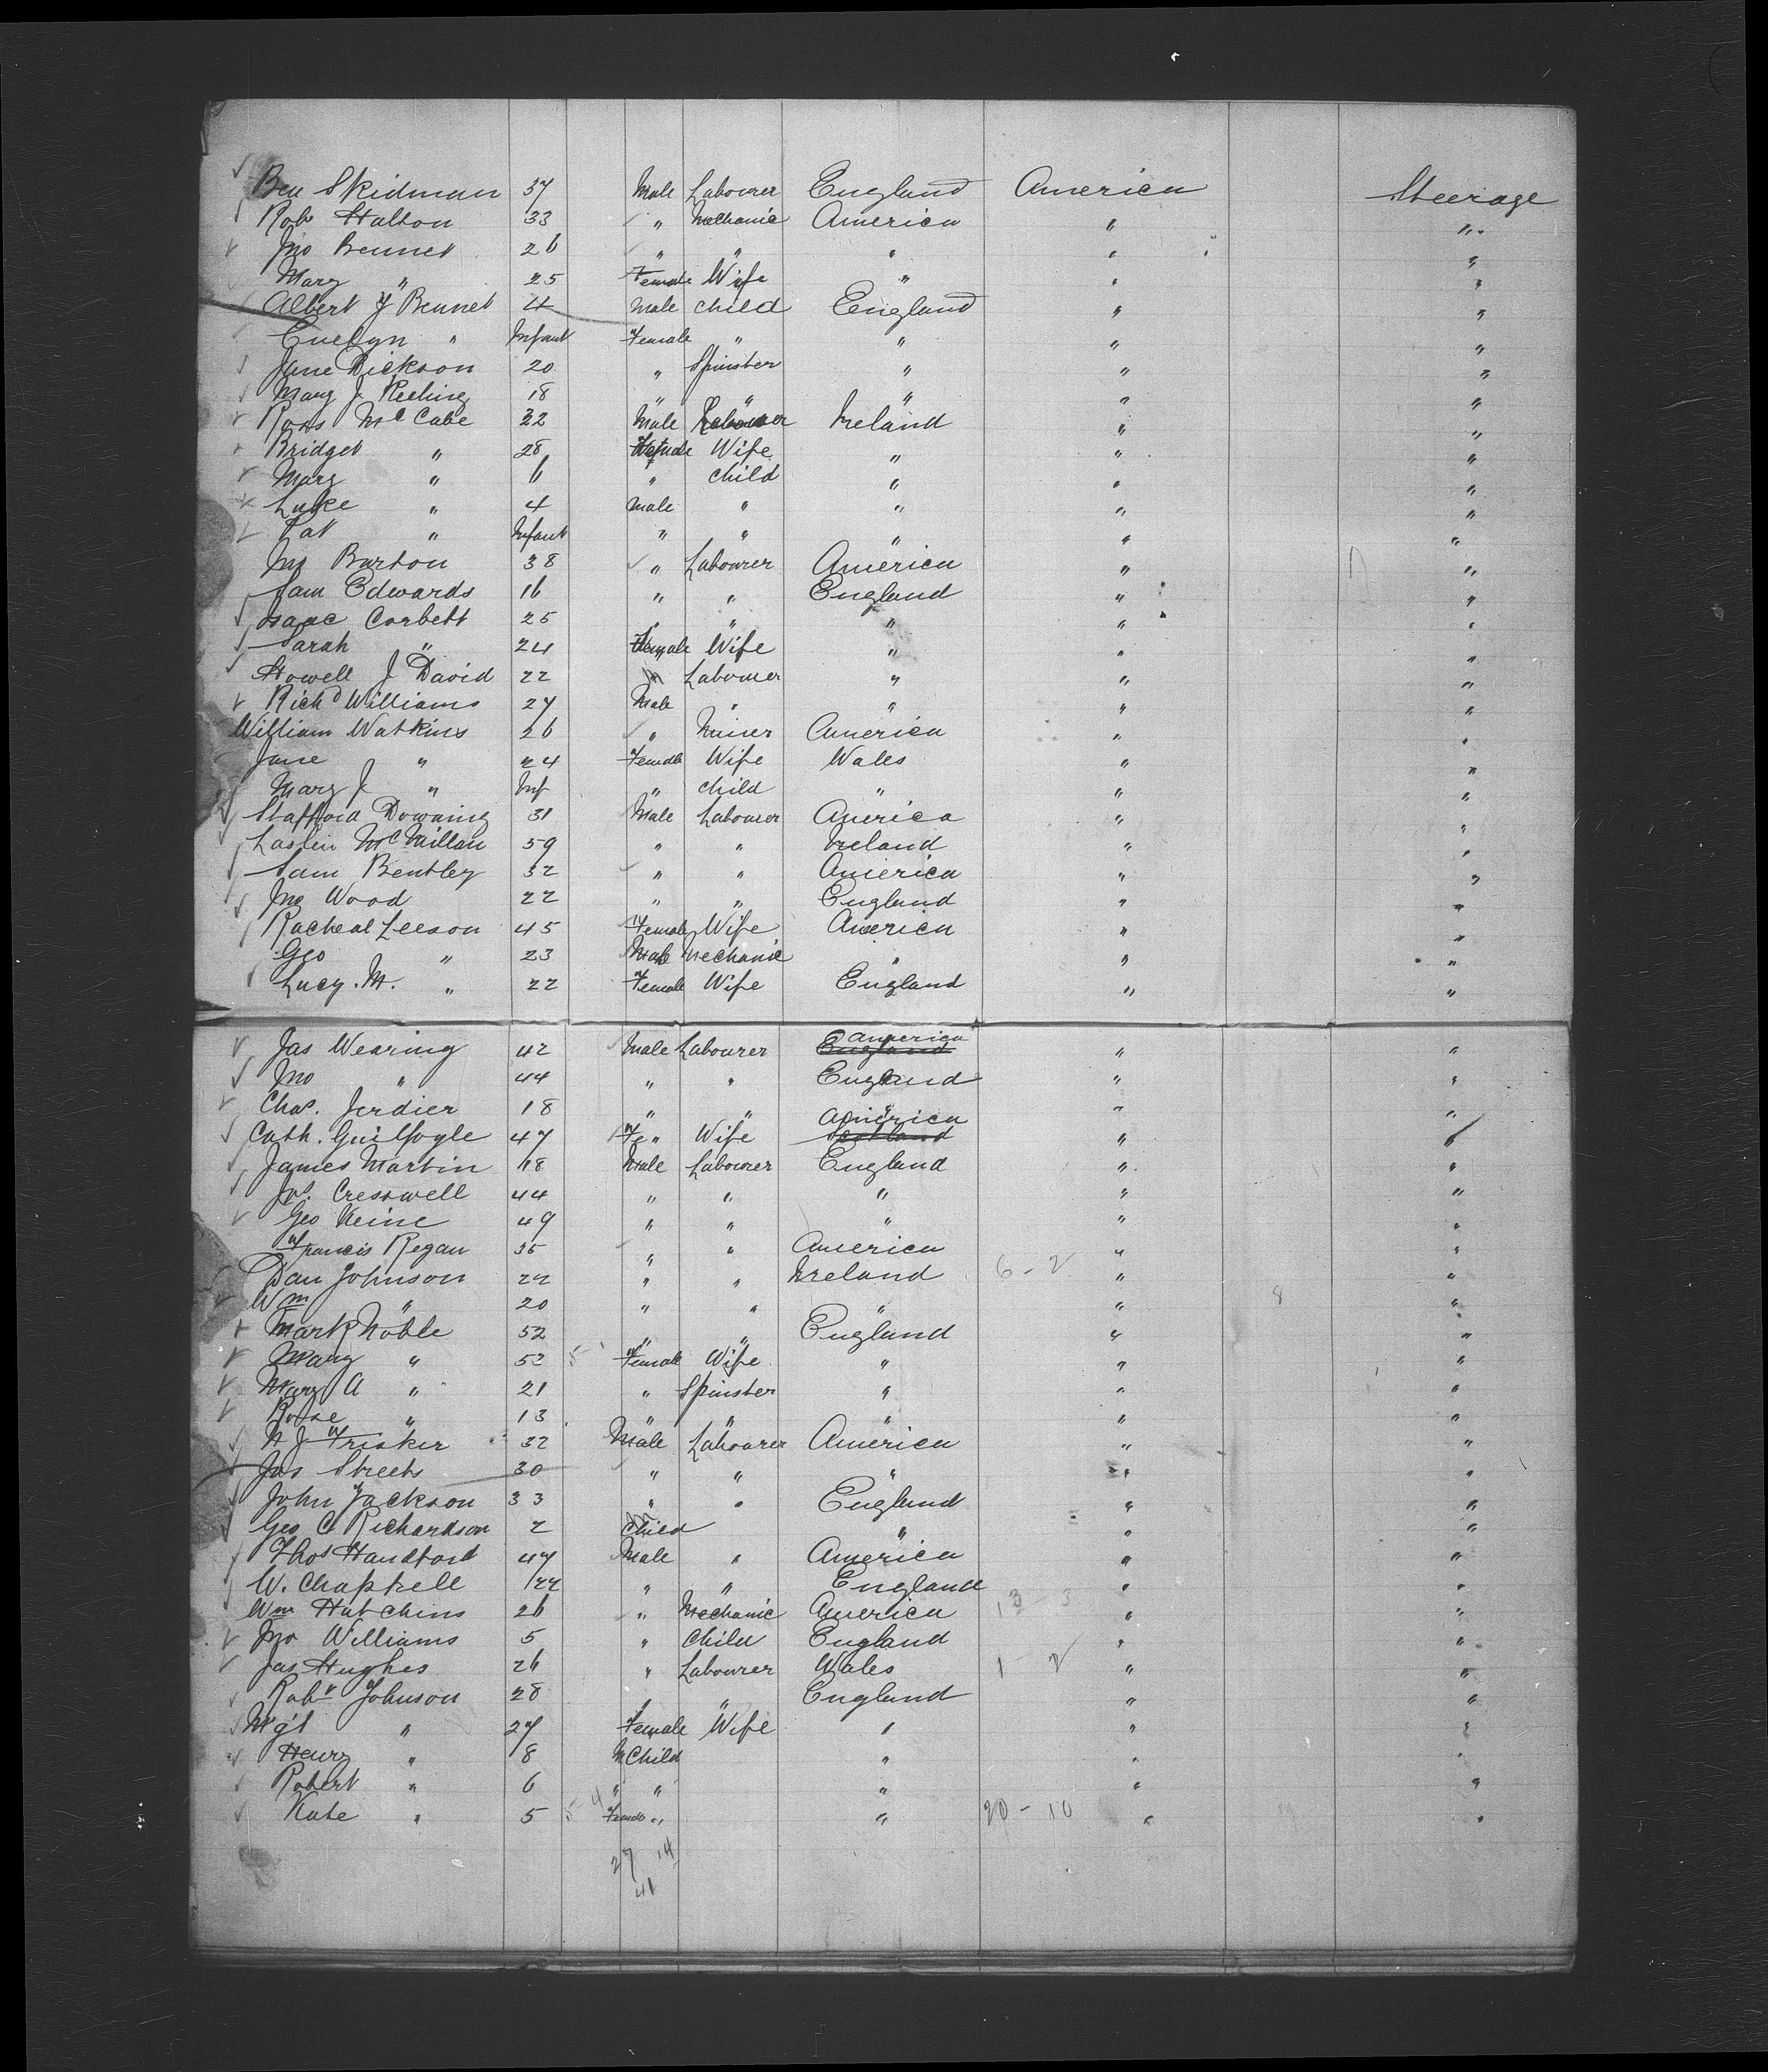 Ben Skidman 37 Male Labourer England America Steerage
Rob Halton 33 " Mechanic America " "
Jno Bennet 26 " " " " "
Mary " 25 Female Wife " " "
Albert J Bennet 4 Male Child England " "
Evelyn " Infant Female " " " "
Jane Dickson 20 " Spinster " " "
Mary J. Keeling 18 " " " " "
Ross McCabe 32 Male Labourer Ireland " "
Bridget " 28 Female Wife " " "
Mary " 6 " Child " " "
Luke " 4 Male " " " "
Pat " Infant " " " " "
Jno Barton 38 " Labourer America " "
Sam Edwards 16 " " England " "
Isaac Corbett 25 " " " " "
Sarah " 24 Female Wife " " "
Howell J David 22 Labourer " " "
Richd Williams 27 Male " " " "
William Watkins 26 " Miner America " "
Jane " 24 Female Wife Wales " "
Mary J " Inf " Child " " "
Stafford Downing 31 Male Labourer America " "
Laslin McMillan 59 " " Ireland " "
Sam Bentley 32 " " America " "
Jno Wood 22 " " England " "
Racheal Leeson 45 Female Wife America " "
Geo " 23 Male Mechanic " " "
Lucy. M. " 22 Female Wife England " "
Jas Wearing 42 Male Labourer England America " "
Jno " 44 " " England " "
Chas. Jerdier 18 " " " " "
Cath. Guilfoyle 47 Fe " Wife Scotland America " "
James Martin 18 Male Labourer England " "
Jos. Cresswell 44 " " " " "
Geo Keine 49 " " " " "
Francis Regan 35 " " America " "
Dan Johnson 22 " " Ireland 6 - 2 " "
Wm " 20 " " " " 8 "
Mark Noble 52 " " England " "
Mary " 52 5 Female Wife " " "
Mary A " 21 " Spinster " " "
Rose " 13 " " " " "
N J Frisker 32 Male Labourer America " "
Jas Streets 30 " " " " "
John Jackson 33 " " England " "
Geo C Richardson 2 Child " " "
Thos Handford 47 Male " America " "
W. Chappell 22 " " England " "
Wm Hutchins 26 " Mechanic America 13 - 3 " "
Jno Williams 5 " Child England " "
Jas Hughes 26 " Labourer Wales 1 - 2 " "
Robt Johnson 28 " " England " "
Mgt " 27 Female Wife " " "
Henry " 8 M Child " " "
Robert " 6 " " " " "
Kate " 5 5 4 Female " " 20 - 10 " "
27 14
41